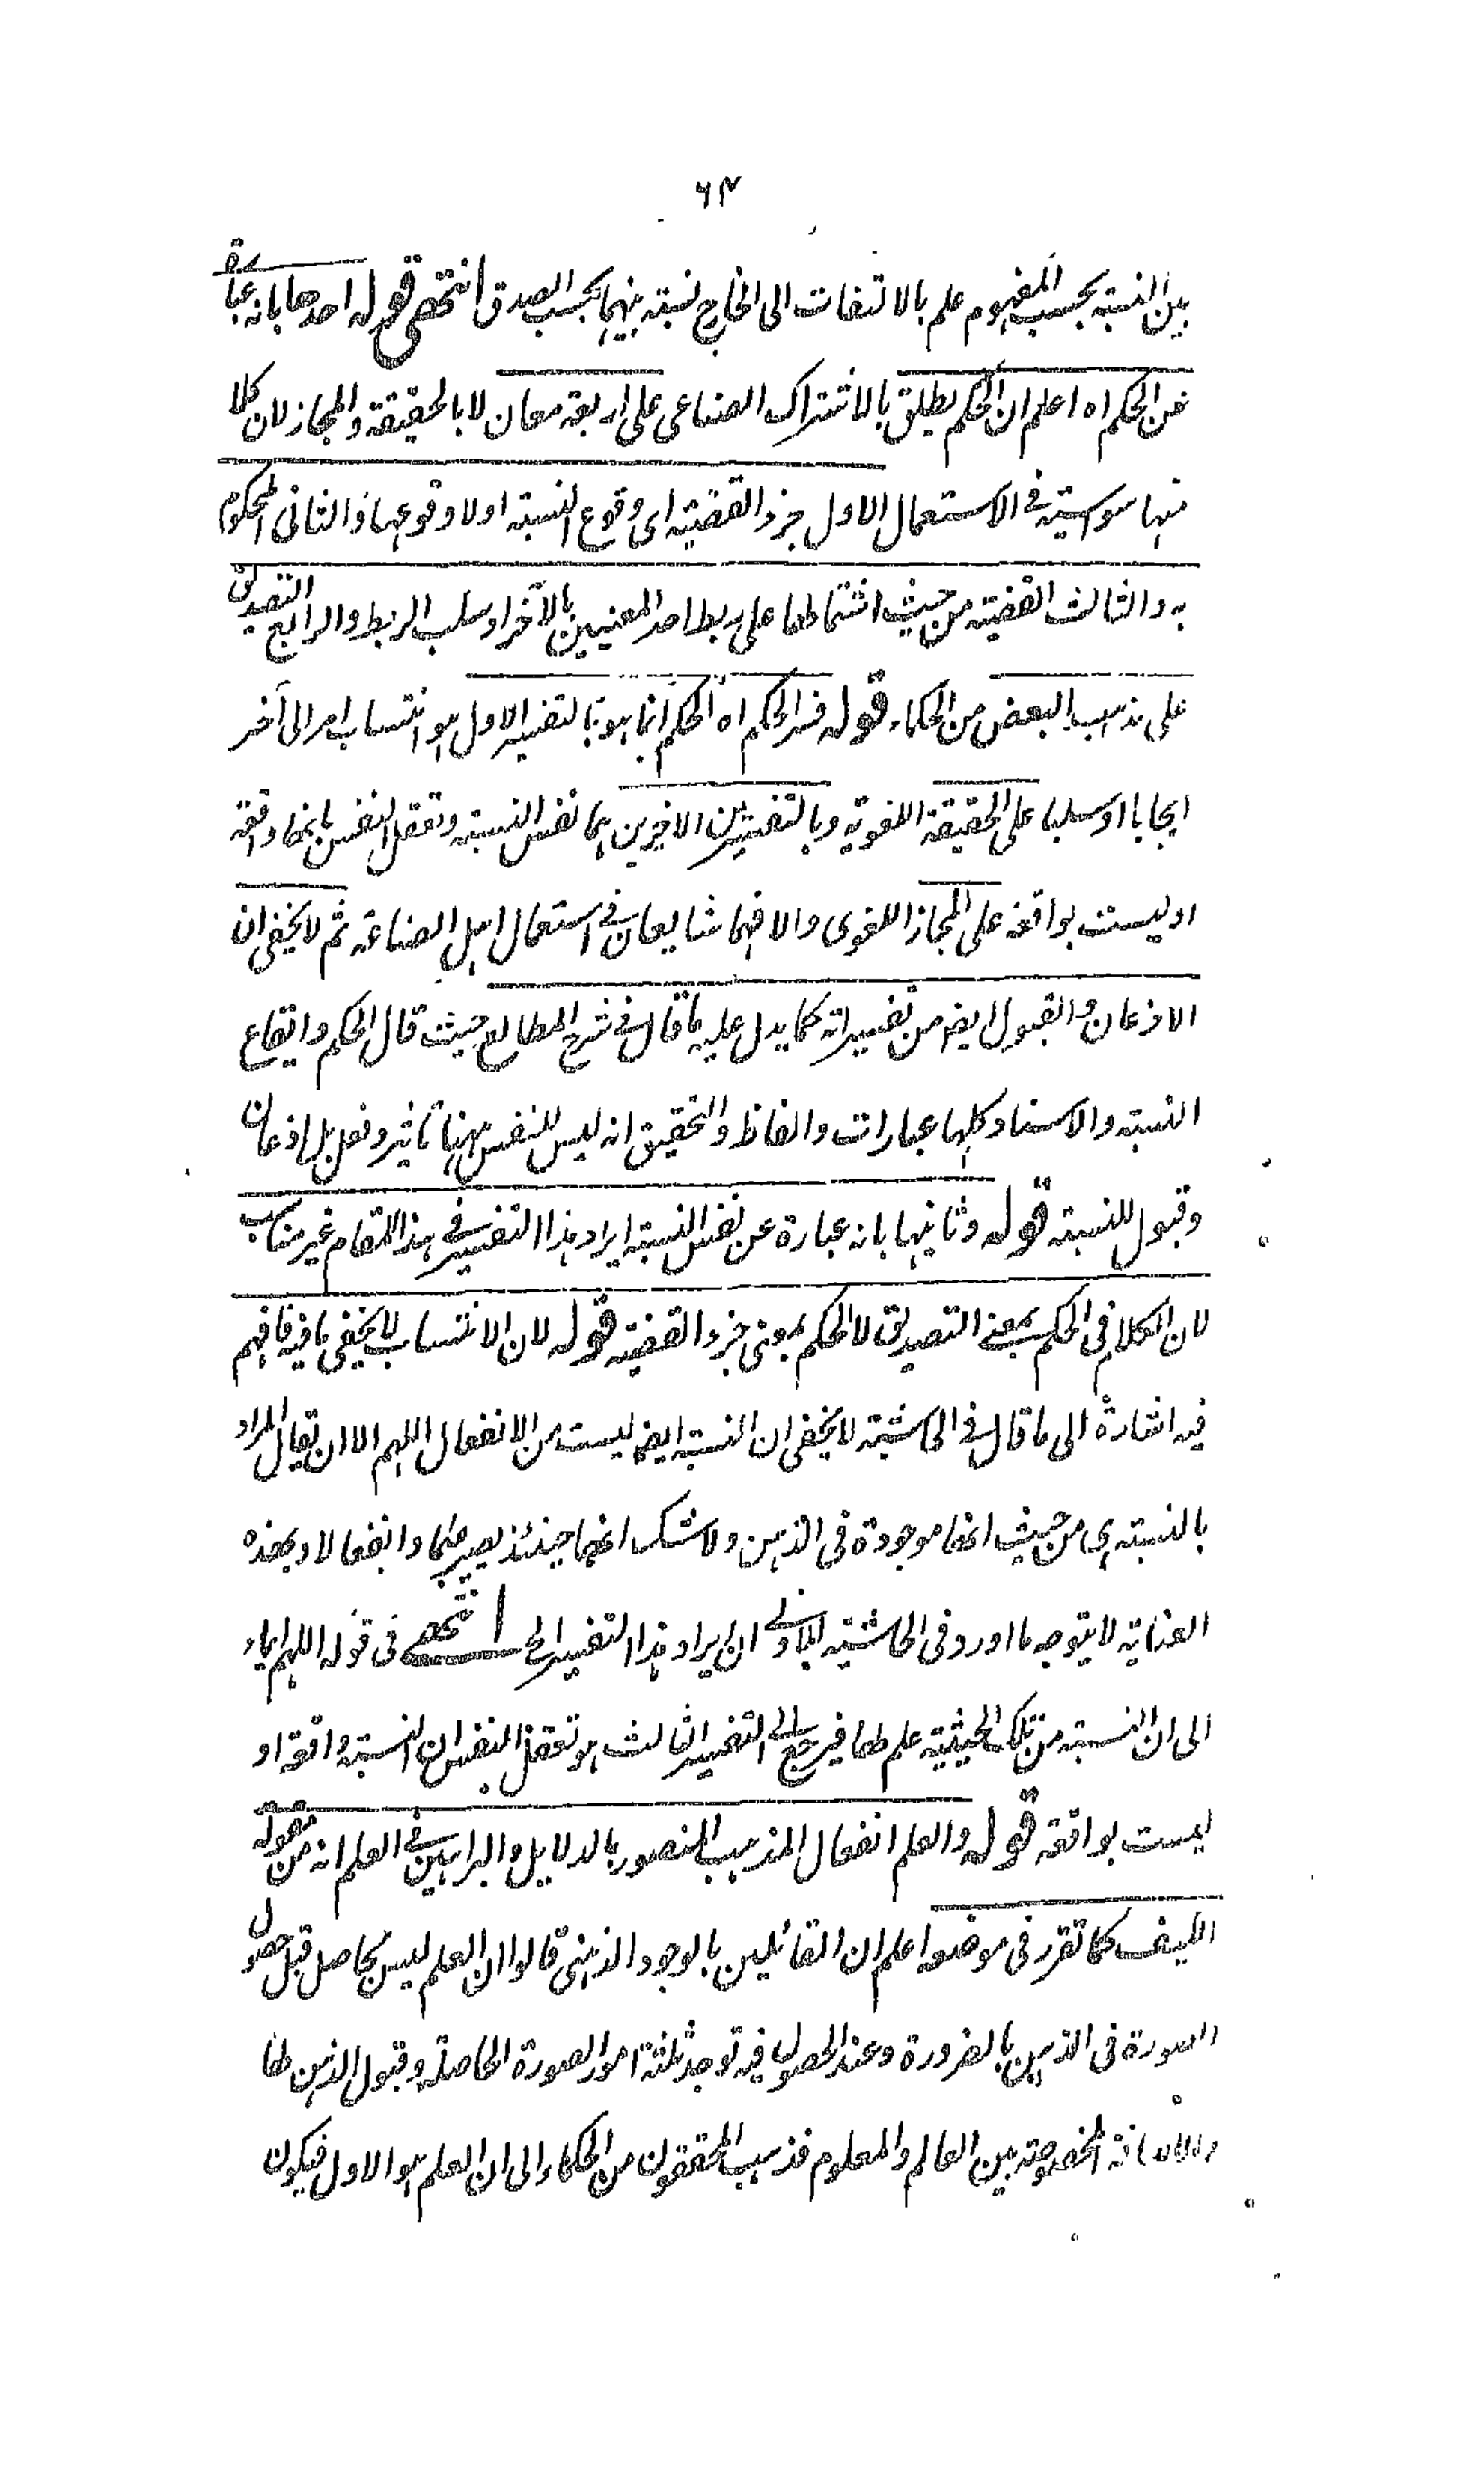 ٦٣
بين النسبة بحسب المفهوم علم بالالتفات الى الخارج نسبة بينهما بحسب الصدق انتهى قوله احدها بانه عبارة
عن الحكم اه اعلم ان الحكم يطلق بالاشتراك الصناعى على اربعة معان لا بالحقيقة والمجاز لان كلا
منها سواسية فى الاستعمال الاول جزء القضية اى وقوع النسبة او لا وقوعها والثانى المحكوم
به والثالث القضية من حيث اشتمالها على ربط احد المعنيين بالآخر او سلب الربط والرابع التصديق
على مذهب البعض من الحكماء قوله فسر الحكم اه الحكم انما هو بالتفسير الاول هو انتساب امر الى آخر
ايجابا او سلبا على الحقيقة اللغوية وبالتفسيرين الاخيرين هما نفس النسبة وتعقل النفس بانها واقعة
او ليست بواقعة على المجاز اللغوى والا فهما شايعان فى استعمال اهل الصناعة ثم لا يخفى ان
الاذعان والقبول ايضا من تفسيراته كما يدل عليه ما قال فى شرح المطالع حيث قال الحكم وايقاع
النسبة والاسناد كلها عبارات والفاظ والتحقيق انه ليس للنفس ههنا تاثير وفعل بل اذعان
وقبول للنسبة قوله وثانيها بانه عبارة عن نفس النسبة ايراد هذا التفسير فى هذا المقام غير مناسب
لان الكلام فى الحكم بمعنى التصديق لا الحكم بمعنى جزء القضية قوله لان الانتساب لا يخفى ما فيه فافهم
فيه اشارة الى ما قال فى الحاشية لا يخفى ان النسبة ايضا ليست من الانفعال اللهم الا ان يقال المراد
بالنسبة هى من حيث انها موجودة فى الذهن ولا شك انها حينئذ يصير علما وانفعالا وبهذه
العناية لا يتوجه ما اورد فى الحاشية الاولى ان ايراد هذا التفسير الخ انتهى فى قوله اللهم ايماء
الى ان النسبة من تلك الحيثية علم لها فيرجع الى التفسير الثالث هو تعقل النفس ان النسبة واقعة او
ليست بواقعة قوله والعلم انفعال المذهب المنصور بالدلايل والبراهين فى العلم انه من مقولة
الكيف كما تقرر فى موضعه اعلم ان القائلين بالوجود الذهنى قالوا ان العلم ليس بحاصل قبل حصول
الصورة فى الذهن بالضرورة وعند الحصول فيه توجد ثلثة امور الصورة الحاصلة وقبول الذهن لها
والاضافة المخصوصة بين العالم والمعلوم فذهب المحققون من الحكماء الى ان العلم هو الاول فيكون